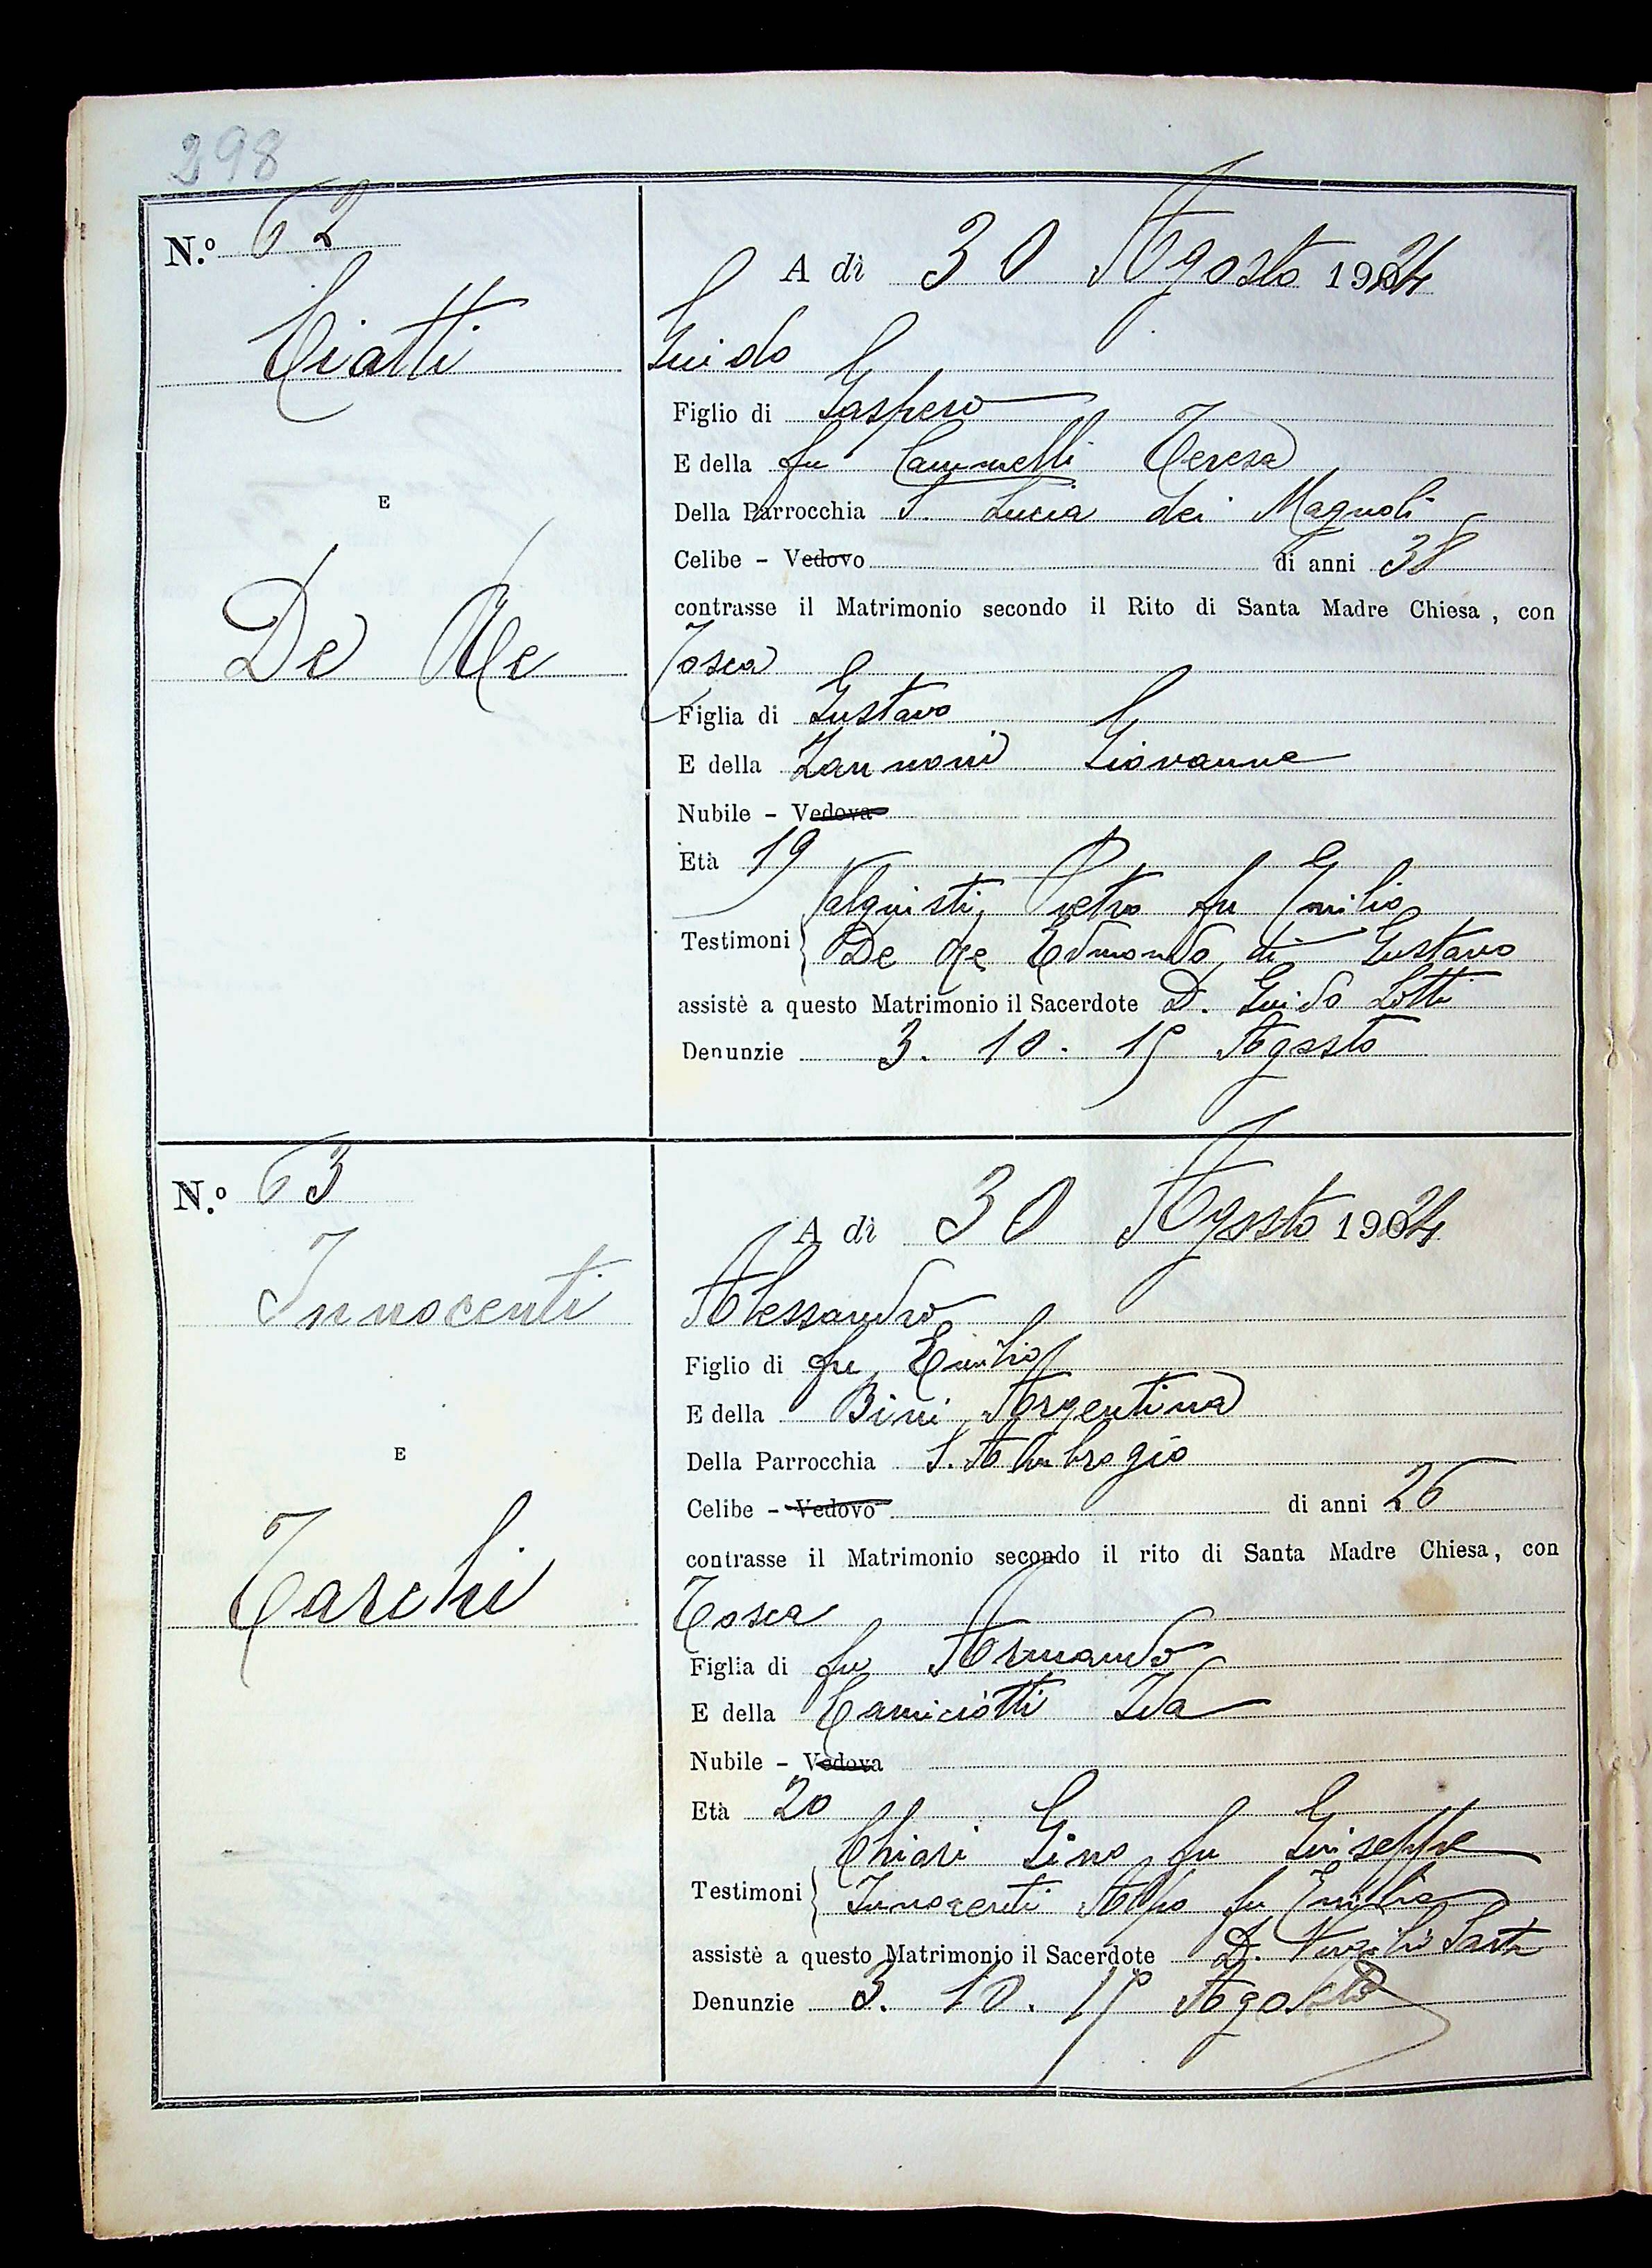 298
N.º 62
A dì 30 Agosto 1924
Ciatti
Guido
Figlio di Gaspero
E della fu Cammelli Teresa
E
Della Parrocchia S. Lucia dei Magnoli
Celibe - Vedovo di anni 38
contrasse il Matrimonio secondo il Rito di Santa Madre Chiesa, con
De Re
Tosca
Figlia di Gustavo
E della Zannoni Giovanna
Nubile - Vedova
Età 19
Pietro fu Emilio
Testimoni De Re Edmondo di Gustavo
assistè a questo Matrimonio il Sacerdote D. Guido Lotti
Denunzie 3. 10. 15 Agosto
N.º 63
A dì 30 Agosto 1924
Innocenti
Alessandro
Figlio di fu Emilio
E della Bini Argentina
E
Della Parrocchia S. Ambrogio
Celibe - Vedovo di anni 26
contrasse il Matrimonio secondo il rito di Santa Madre Chiesa, con
Tarchi
Tosca
Figlia di fu Armando
E della Camiciotti Ida
Nubile - Vedova
Età 20
Chiari Gino fu Giuseppe
Testimoni Innocenti fu Emilio
assistè a questo Matrimonio il Sacerdote D.
Denunzie 3. 10. 15 Agosto